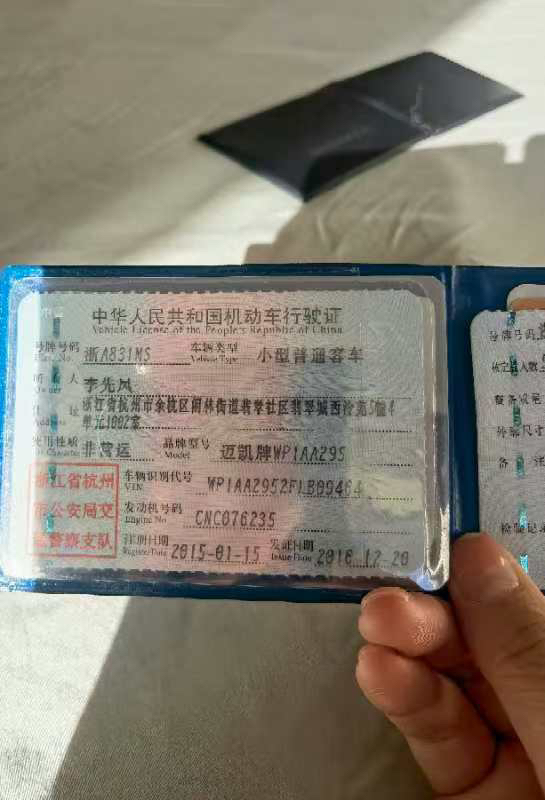 中华人民共和国机动车行驶证
Vehicle License of the People's Republic of China
号牌号码 浙A831MS 车辆类型 小型普通客车
Plate No. Vehicle Type
所有人 李先风
Owner
住址 浙江省杭州市余杭区闲林街道翡翠社区翡翠城西沧苑5幢4
Address 单元1002室
使用性质 非营运 品牌型号 迈凯牌WP1AA295
Use Character Model
浙江省杭州
市公安局交
通警察支队
车辆识别代号 WP1AA2952FLB09464
VIN
发动机号码 CNC076235
Engine No
注册日期 2015-01-15 发证日期 2016-12-20
Register Date Issue Date
号牌号码
核定 人数
整备质量
外廓尺寸
备注
检验记录